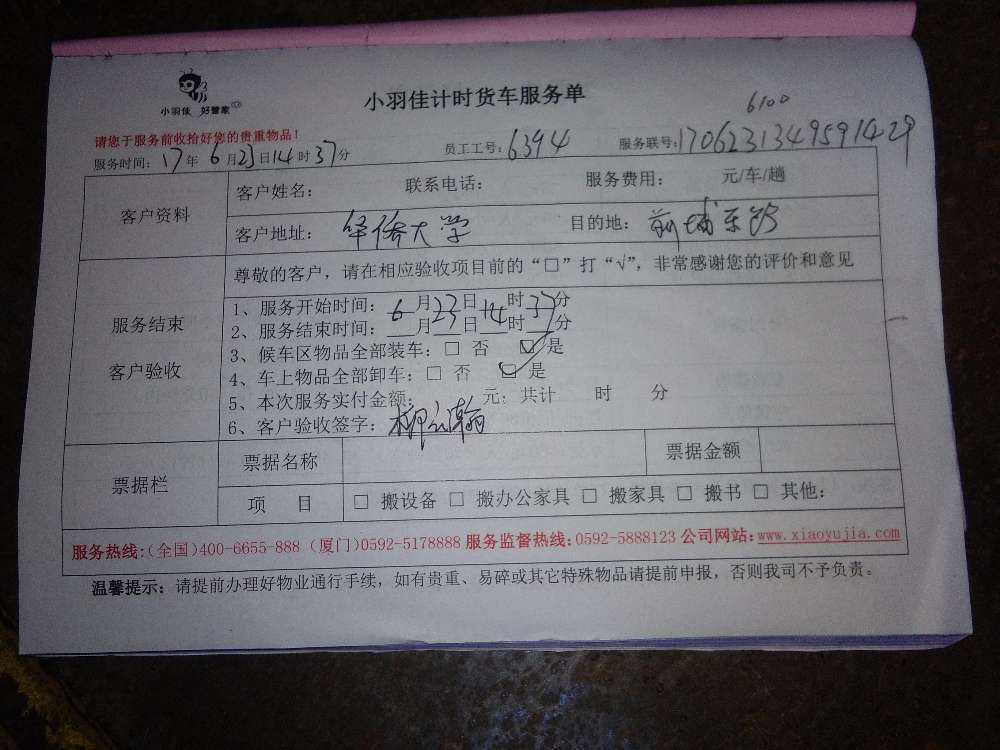 小羽佳 好管家
小羽佳计时货车服务单
6100
请您于服务前收拾好您的贵重物品！
服务时间：17年6月23日14时37分 员工工号：6394 服务联号：1706231349591429
客户资料
客户姓名： 联系电话： 服务费用： 元/车/趟
客户地址：华侨大学 目的地：前埔东路
服务结束
客户验收
尊敬的客户，请在相应验收项目前的“□”打“√”，非常感谢您的评价和意见
1、服务开始时间：6月23日14时37分
2、服务结束时间： 月 日 时 分
3、候车区物品全部装车：□ 否 ☑ 是
4、车上物品全部卸车：□ 否 ☑ 是
5、本次服务实付金额： 元；共计 时 分
6、客户验收签字：
票据栏
票据名称 票据金额
项 目 □ 搬设备 □ 搬办公家具 □ 搬家具 □ 搬书 □ 其他：
服务热线：(全国)400-6655-888 (厦门)0592-5178888 服务监督热线：0592-5888123 公司网站：www.xiaoyujia.com
温馨提示：请提前办理好物业通行手续，如有贵重、易碎或其它特殊物品请提前申报，否则我司不予负责。